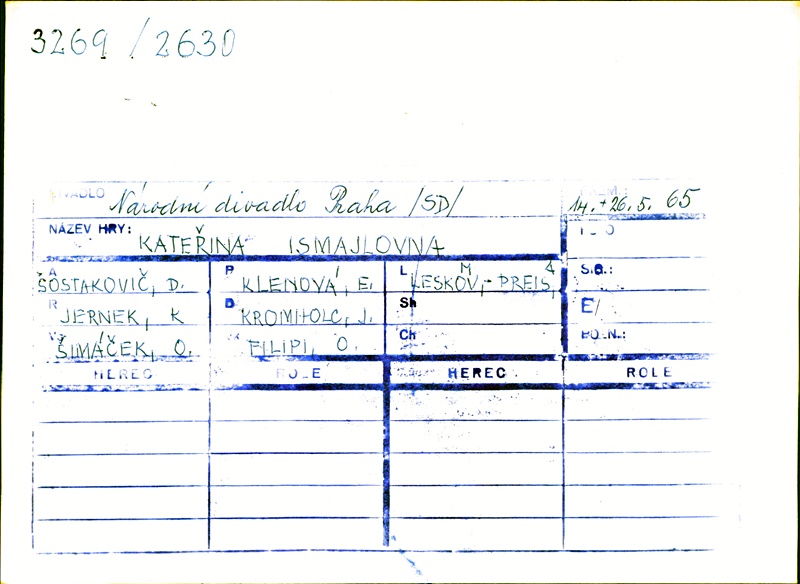 3269 / 2630
DIVADLO Národní divadlo Praha /SD/ 14. + 26. 5. 65
NÁZEV HRY: KATEŘINA ISMAJLOVNA
A ŠOSTAKOVIČ, D. P KLENOVÁ, E. L LESKOV, - PREIS, S.O.:
R JERNEK, K D KROMHOLC, J. Sh E/
ŠIMÁČEK, O. FILIPI, O. Ch POZN.:
HEREC ROLE HEREC ROLE